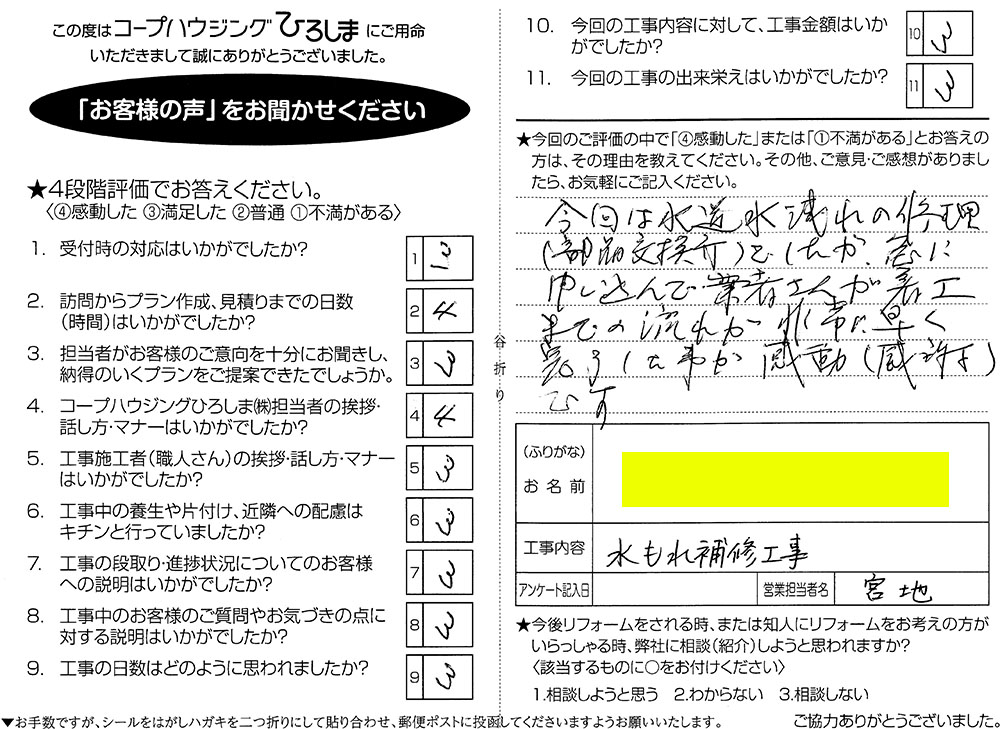 この度はコープハウジングひろしまにご用命
いただきまして誠にありがとうございました。
「お客様の声」をお聞かせください
★4段階評価でお答えください。
〈④感動した ③満足した ②普通 ①不満がある〉
1. 受付時の対応はいかがでしたか?
1 3
2. 訪問からプラン作成、見積りまでの日数
(時間)はいかがでしたか?
2 4
3. 担当者がお客様のご意向を十分にお聞きし、
納得のいくプランをご提案できたでしょうか。
3 3
4. コープハウジングひろしま㈱担当者の挨拶・
話し方・マナーはいかがでしたか?
4 4
5. 工事施工者(職人さん)の挨拶・話し方・マナー
はいかがでしたか?
5 3
6. 工事中の養生や片付け、近隣への配慮は
キチンと行っていましたか?
6 3
7. 工事の段取り・進捗状況についてのお客様
への説明はいかがでしたか?
7 3
8. 工事中のお客様のご質問やお気づきの点に
対する説明はいかがでしたか?
8 3
9. 工事の日数はどのように思われましたか?
9 3
▼お手数ですが、シールをはがしハガキを二つ折りにして貼り合わせ、郵便ポストに投函してくださいますようお願いいたします。
谷折り
10. 今回の工事内容に対して、工事金額はいか
がでしたか?
10 3
11. 今回の工事の出来栄えはいかがでしたか?
11 3
★今回のご評価の中で「④感動した」または「①不満がある」とお答えの
方は、その理由を教えてください。その他、ご意見・ご感想がありまし
たら、お気軽にご記入ください。
今回は水道水漏れの修理
(部品交換)をしたが、急に
申し込んで業者さんが着工
までの流れが非常に早く
完了した事が感動(感謝)
です
(ふりがな)
お名前
工事内容 水もれ補修工事
アンケート記入日 営業担当者名 宮地
★今後リフォームをされる時、または知人にリフォームをお考えの方が
いらっしゃる時、弊社に相談(紹介)しようと思われますか?
〈該当するものに○をお付けください〉
1.相談しようと思う 2.わからない 3.相談しない
ご協力ありがとうございました。